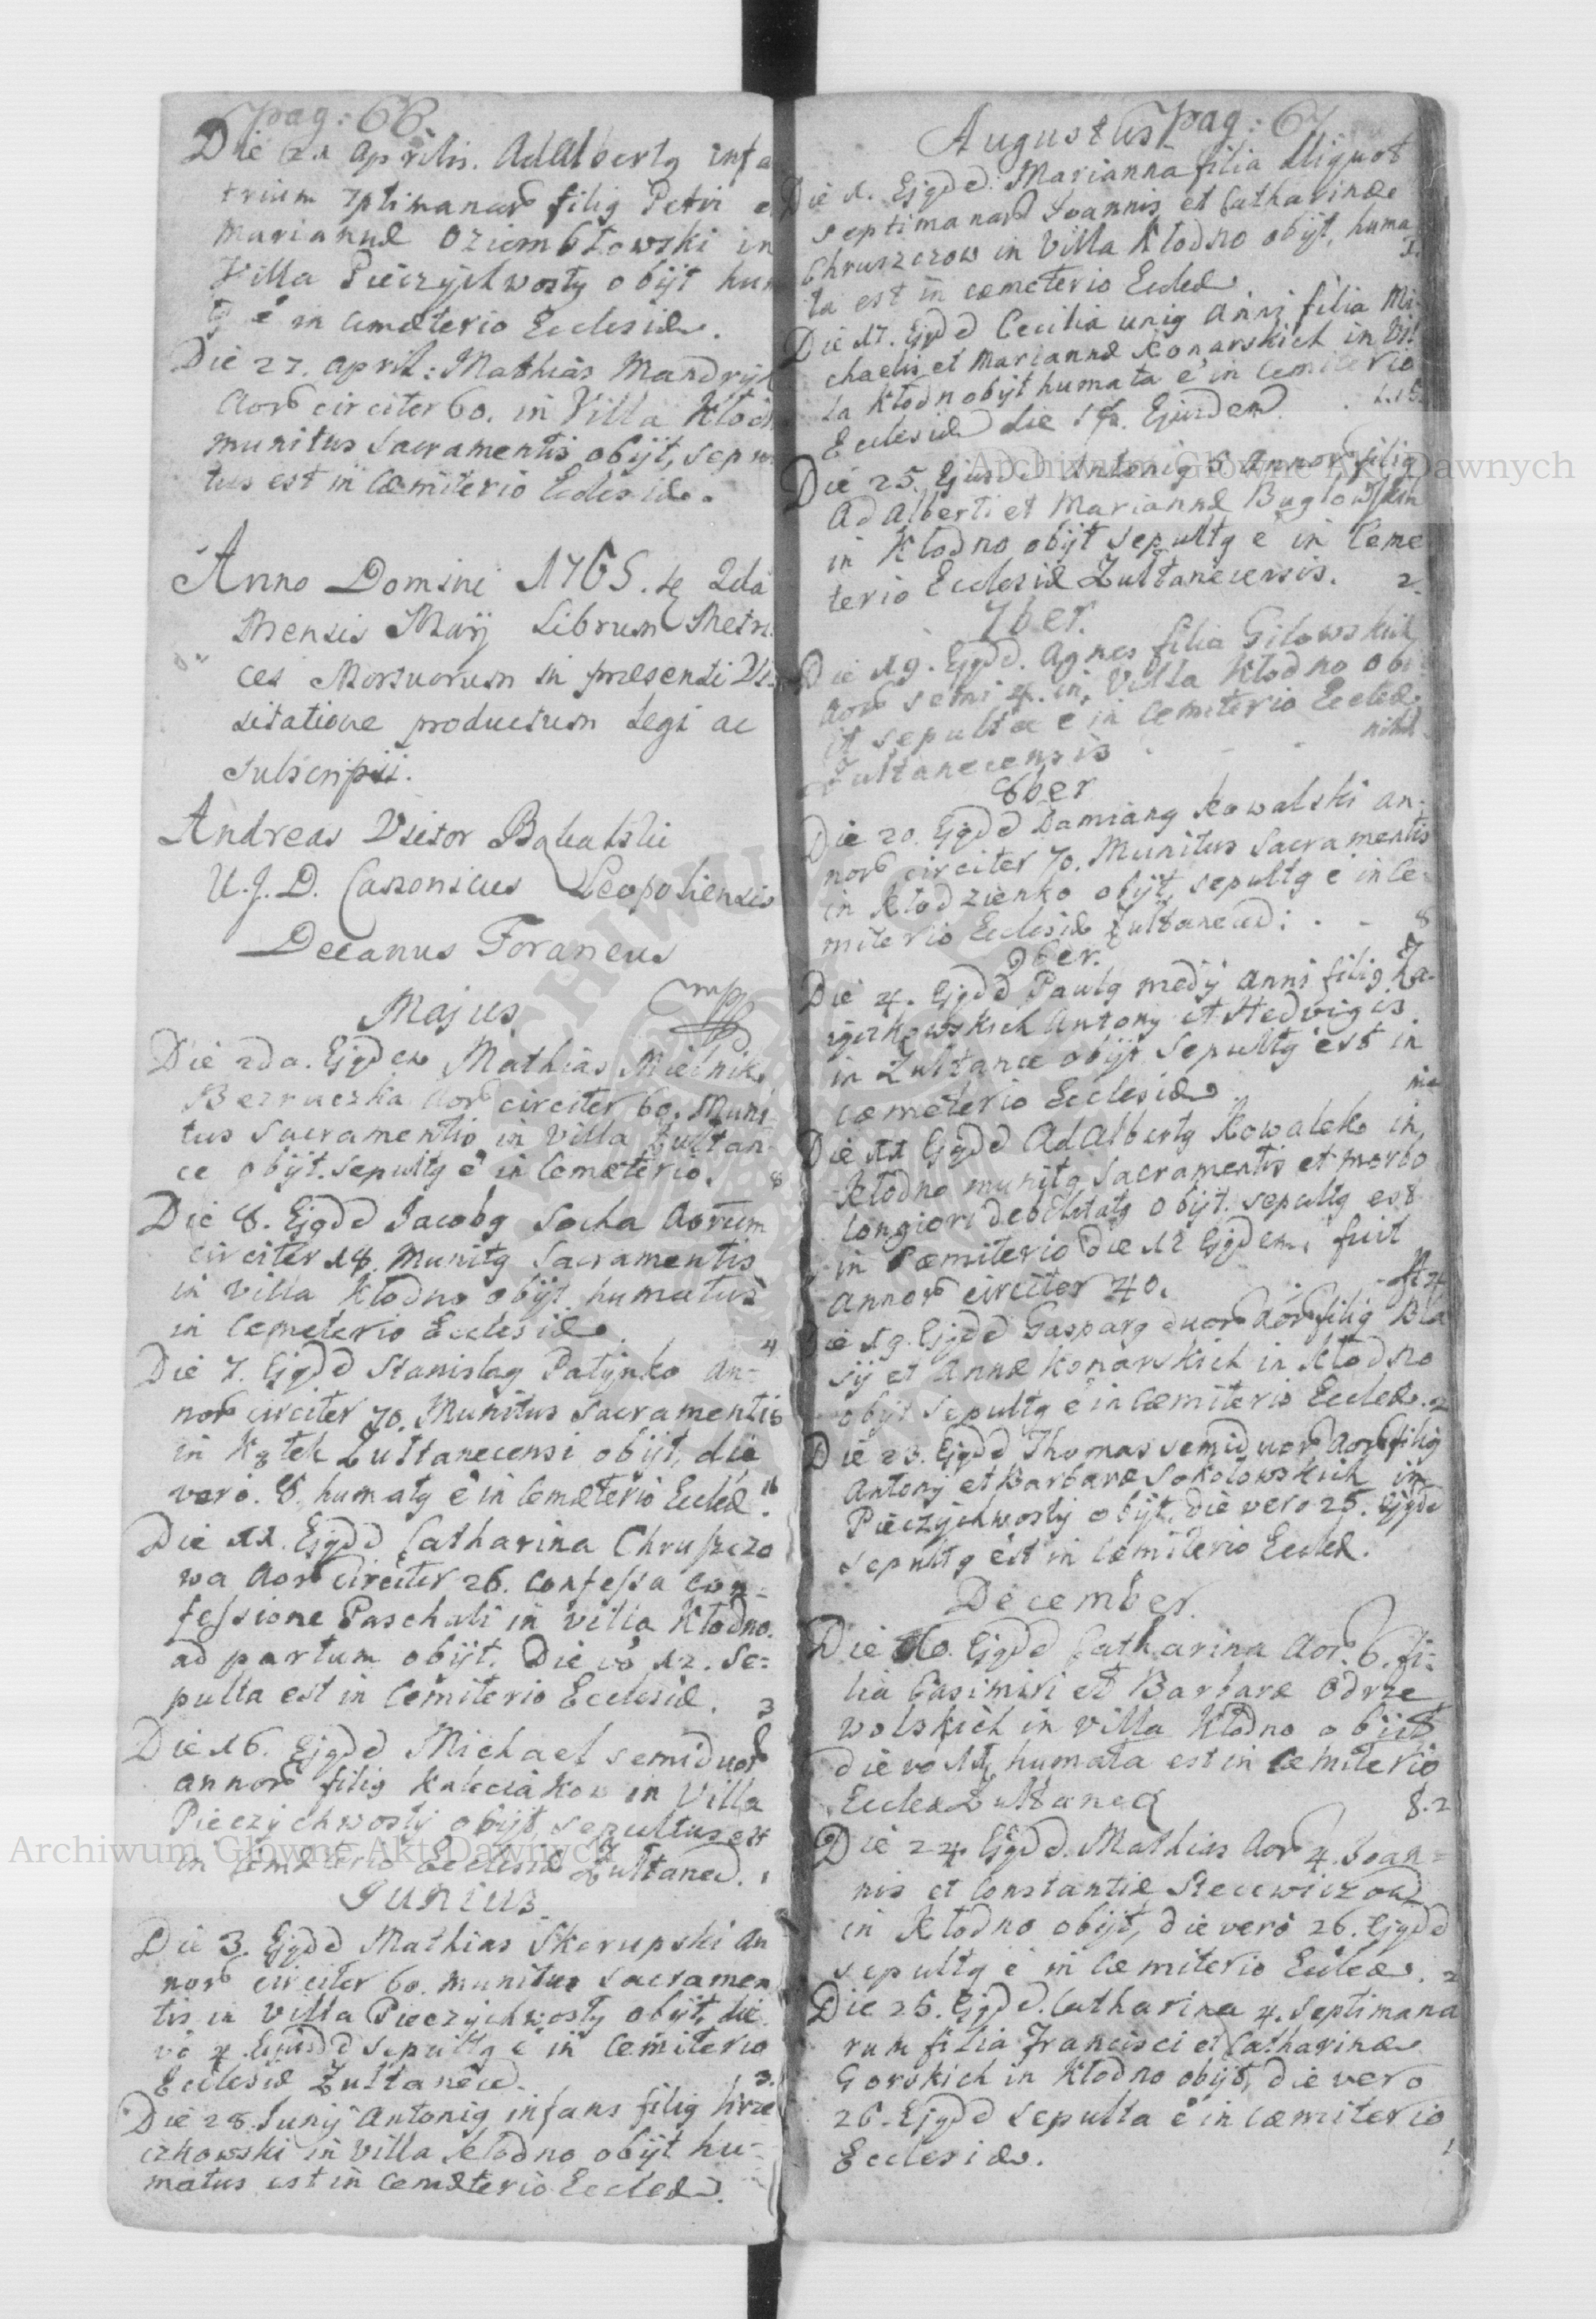 pag: 66.
Die 21 Aprilis. Adalbertg infa
trium 7ptimanar filig Petri e
Mariannæ Oziembłowski in
Villa Pieczychwosty obijt hum
tg ē in Cemæterio Ecclesiæ.
Die 27. April: Mathias Mandryk
Aor circiter 60. in Villa Kłodn
munitus Sacramentis obijt, sepul
tus est in Cæmiterio Ecclesiæ.
Anno Domini 1765. 2da
Mensis Maij Librum Metri
ces Mortuorum in præsenti Vi
sitatione productum Legi ac
subscripsi.
Andreas Visitor
U.J.D. Canonicus Leopoliensis
Decanus Foraneus
mpp
Majus
Die 2da. Ejgdem Mathias Mielnik
Bezruczka Aor circiter 60. Muni
tus Sacramentis in Villa Żułtan
ce obijt. sepultg ē in Cemæterio. 8
Die 8. Ejgdd Jacobg Socha Aorum
circiter 18. Munitg Sacramentis
in Villa Kłodno obijt humatus
in Cemeterio Ecclesiæ. 4
Die 7. Ejgdd Stanislag Patynko an=
nor circiter 70. Munitus Sacramentis
in Kątek Żułtanecensi obijt, die
vero. 8. humatg ē in Cemæterio Eccleæ. 16
Die 11. Ejgdd Catharina Chruszczo
wa Aor circiter 26. Confessa con=
fessione Paschali in villa Kłodno.
ad partum obijt. Die vo 12. Se=
pulta est in Cemiterio Ecclesiæ. 3
Die 16. Ejgdd Michael semiduor
annor filig Kuleciakow in Villa
Pieczychwosty obijt, sepultus est
in Cemæterio Ecclesiæ Żułtaned. 1
Junius
Die 3. Ejgdd Mathias Skerupski an
nor circiter 60. munitus Sacramen
tis in Villa Pieczychwosty obijt, die
vo 4. Ejusdd sepultg ē in Cemiterio
Ecclesiæ Żułtaned. 3.
Die 28. Junij Antonig infans filig Krze
czkowski in Villa Kłodno obijt hu=
matus est in Cemæterio Eccleæ.
Augustus pag: 67
Die 1. Ejgdd: Marianna filia aliquot
septimanar Joannis et Catharinæ
Chruszczow in Villa Kłodno obijt, huma
ta est in cæmeterio Eccleæ.
Die 17. Ejgdd Cecilia unig Anni filia Mi=
chaelis et Mariannæ Konarskich in Vil
la Kłodn obijt humata ē in Cemiterio
Ecclesiæ die 18. Ejusdem. 1.15
Die 25. Ejusdd Antonig 5 Annor filig
Adalberti et Mariannæ Bugłowskich
in Kłodno obijt sepultg ē in Ceme
terio Ecclesiæ Żułtanecensis. 2.
7ber.
Die 19. Ejgdd. Agnes filia Gilowskich
Aor semi 4. in Villa Kłodno obi
it sepulta ē in Cemiterio Eccleæ
Żułtanecensis nihil
8ber
Die 20. Ejgdd Damiang Kowalski an=
nor circiter 70. Munitus Sacramentis
in Kłodzienko obijt, sepultg ē in Ce=
miterio Ecclesiæ Żułtaned: 8
9ber.
Die 4. Ejgdd Paulg medij anni filig
Antonij et Hedvigis
in Żułtance obijt sepultg est in
cæmeterio Ecclesiæ
Die 11 Ejgdd Adalbertg Kowalek in
Kłodno munitg Sacramentis et morbo
longiori debilitatg obijt. sepultg est
in Cæmiterio die 12 Ejgdem, fuit
annor circiter 40.
Die 19. Ejgdd Gasparg duor Aor filig Bla
sij et Annæ Konarskich in Kłodno
obijt sepultg ē in Cæmiterio Eccleæ. 2
Die 23. Ejgdd Thomas semiduor Aor filig
Antonij et Barbaræ Sokołowskich in
Pieczychwosty obijt, die vero 25. Ejgdd
sepultg est in cæmiterio Eccleæ.
December.
Die 10. Ejgdd Catharina Aor. 6. fi=
lia Casimiri et Barbaræ Odrze
wolskich in villa Kłodno obijt
die vo 11 humata est in Cæmiterio
Eccleæ Żułtaned 8.2
Die 24. Ejgdd. Mathias Aor 4. Joan=
nis et Constantiæ Stecewiczow
in Kłodno obijt, die vero 26. Ejgdd
sepultg ē in Cæmiterio Eccleæ. 2
Die 25. Ejgdd. Catharina 4. Septimana
rum filia Francisci et Catharinæ
Gorskich in Kłodno obijt, die vero
26. Ejgdd sepulta ē in cæmiterio
Ecclesiæ. 1
Archiwum Główne Akt Dawnych
Archiwum Główne Akt Dawnych